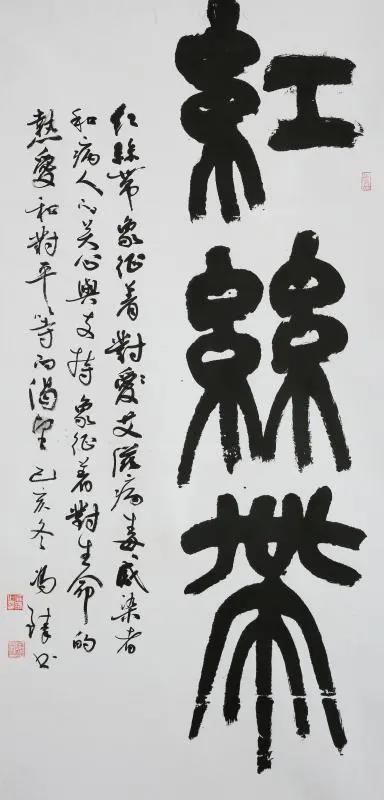 紅絲帶
红絲帶象征着對愛艾滋病毒感染者
和病人的关心與支持象征着對生命的
熱愛和對平等的渴望 己亥冬 馮 书